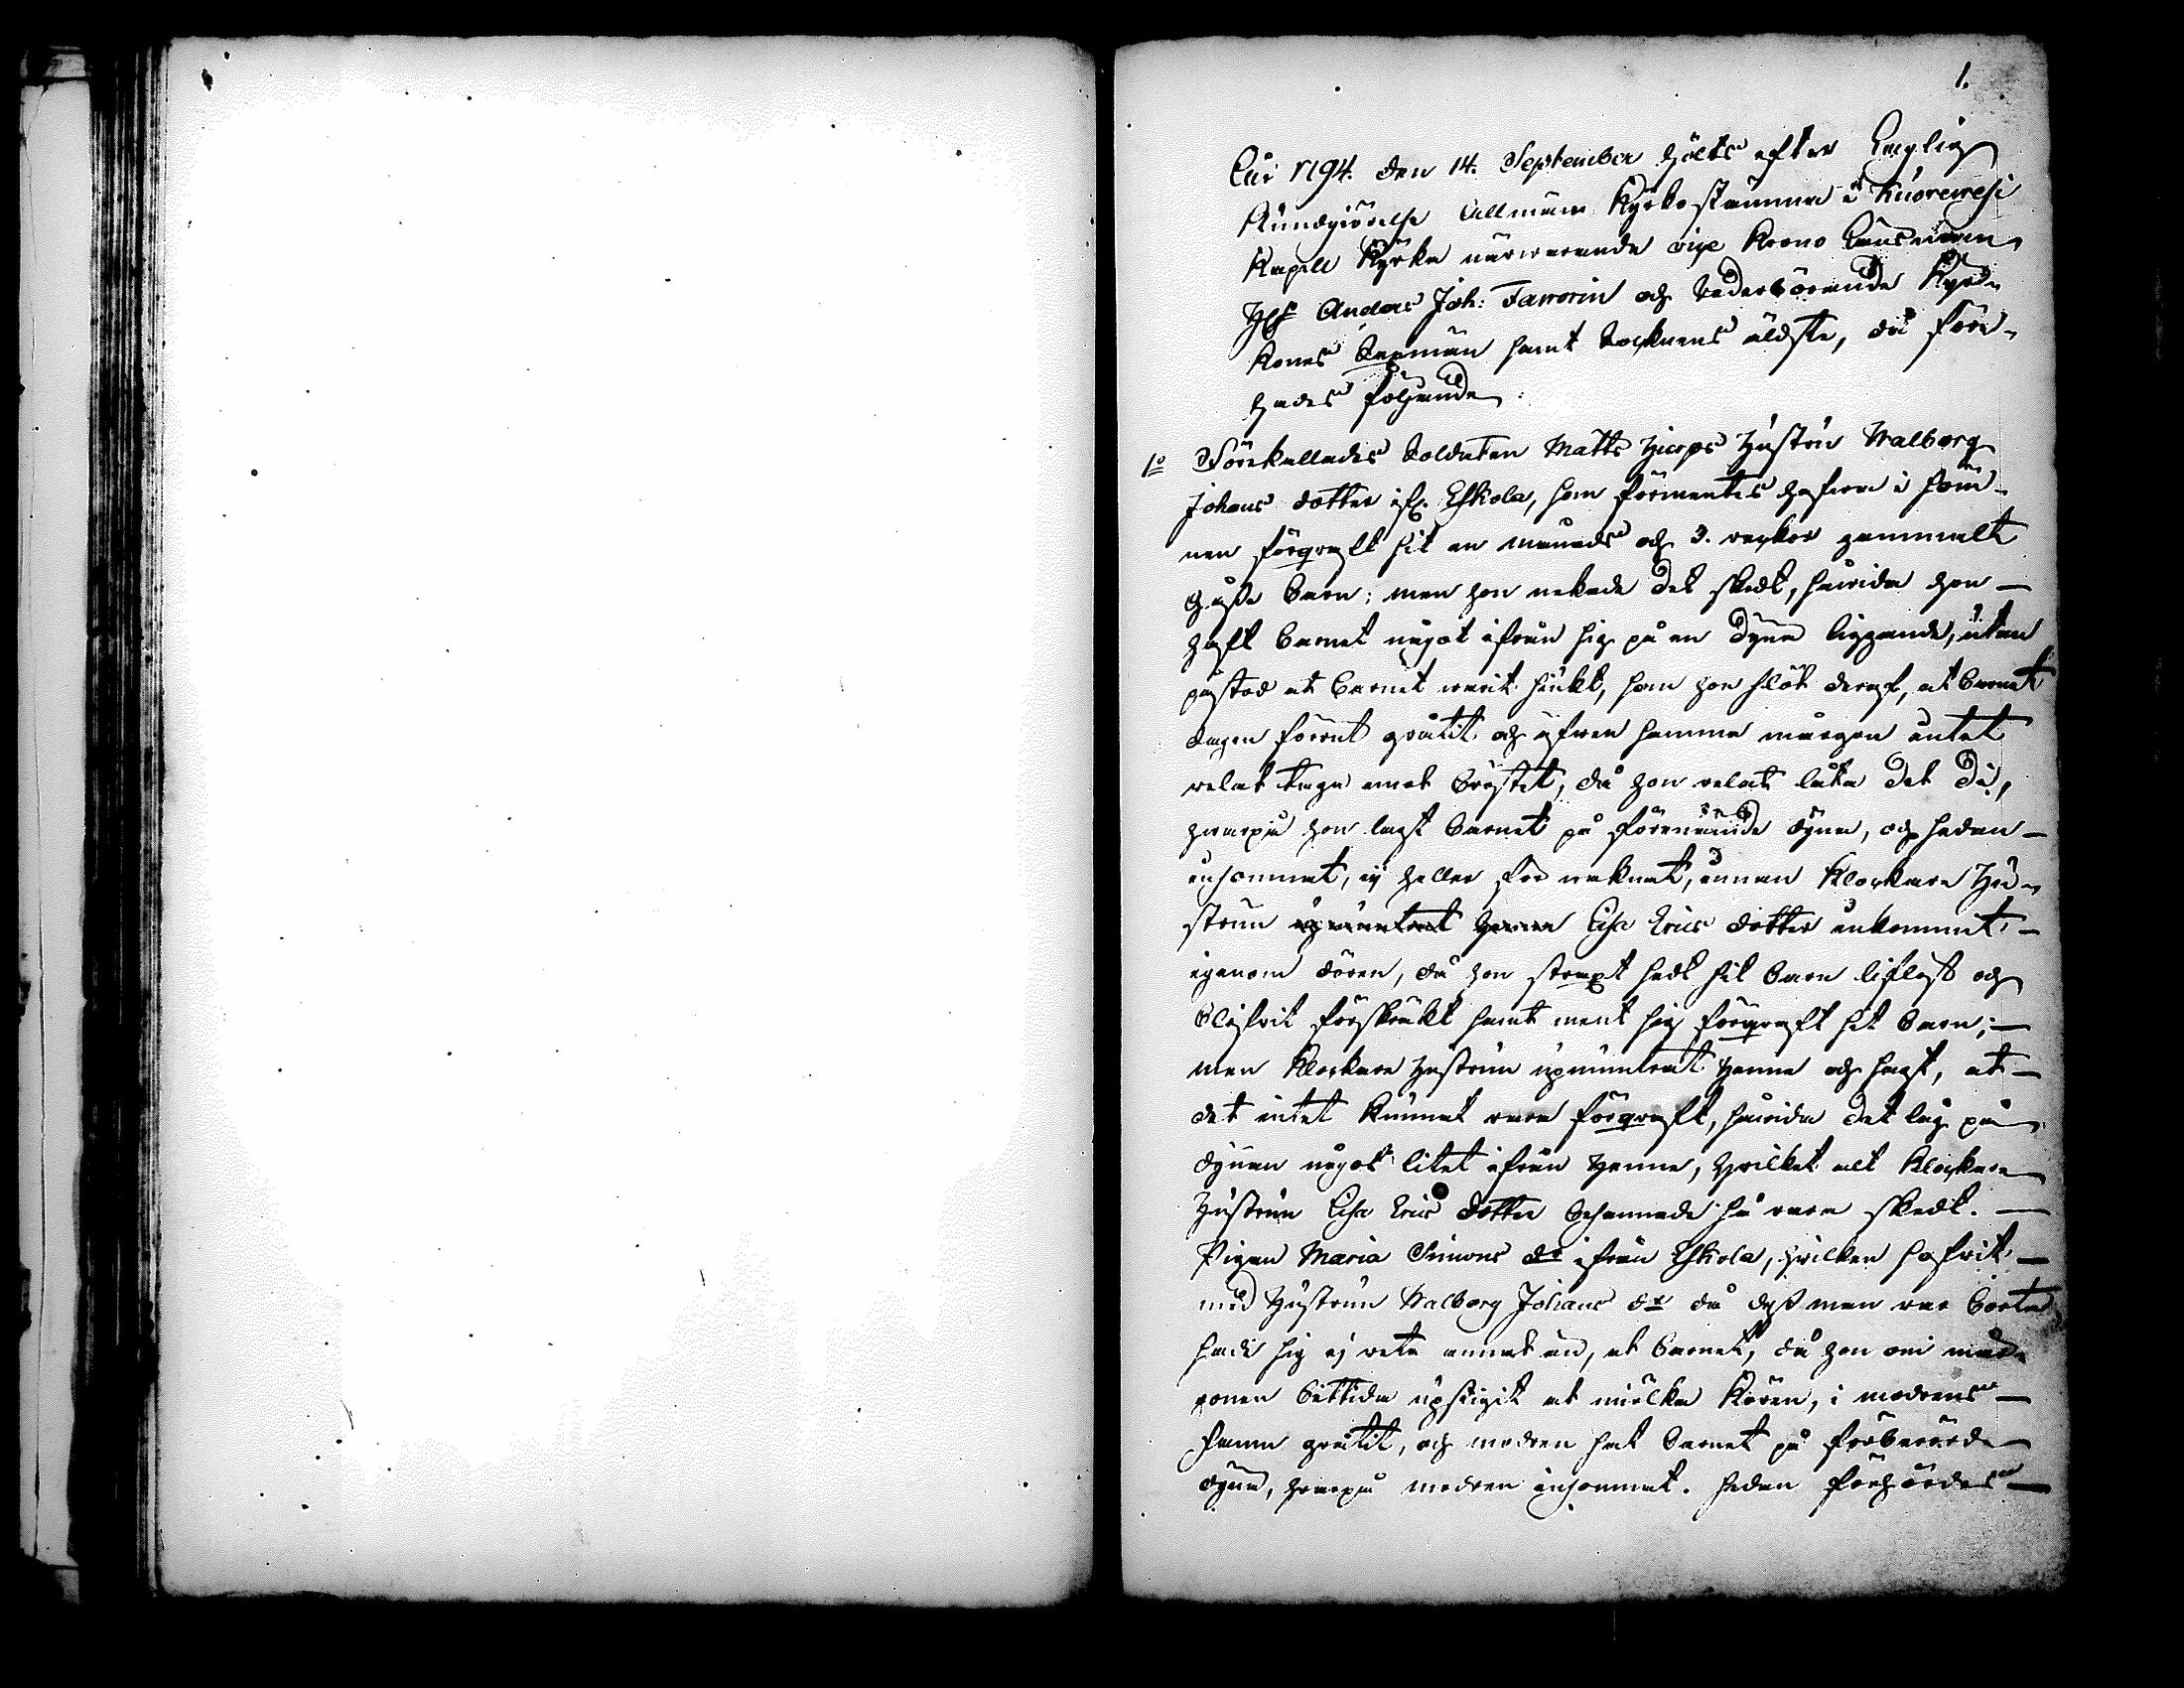 1.
Åhr 1794. den 14. September hölts efter laglig
Kundgiörelse Allmänn Kyrkostämma i Kuorewesi
Kapell Kyrka närwarande vice Krono Länsman
H:r Anders Joh: Favorin och wederbörande Kyr-
kones Sexmän samt Socknens äldste, då före-
hades följande:
1:o Förekallades Soldaten Matts Hjerpes Hustru Walborg
Johans dotter ifr. Eskola, som förmentes hafwa i söm-
nen förqwaft sit en månads och 3. weckor gammalt
Barn; men hon nekade det skedt, såwida hon
haft Barnet något ifrån sig på en Dyna liggande, utan
påstod at Barnet warit siukt, som hon slöt deraf, at Barnet
dagen förrut gråtit och äfwen samma morgon intet
welat taga emot Bröstet, då hon welat låta det di,
hwarpå hon lagt Barnet på förenämde dyna, och sedan
insomnat, ej heller förr waknat, innan Klockare Hu-
strun Lisa Erics dotter inkommit
igenom dören, då hon straxt sedt sit Barn liflöst och
Blifwit förskräkt samt ment sig förqwaft sit Barn;
men Klockare Hustrun upmuntrat henne och sagt, at
det intet kunnat wara förqwaft, såwida det låg på
dynan något litet ifrån henne, hwilket alt Klockare
Hustrun Lisa Erics dotter besannade så wara skedt.
Pigan Maria Simons dr ifrån Eskola, hwilken sofwit
med Hustrun Walborg Johans dr då dess man war borta
sade sig ej weta annat än, at Barnet, då hon om mår-
gonen bittida upstigit at miölka Koren, i modrens
famn gråtit, och modren sat Barnet på förberörde
dyna, hwarpå modren insomnat. Sedan förhördes